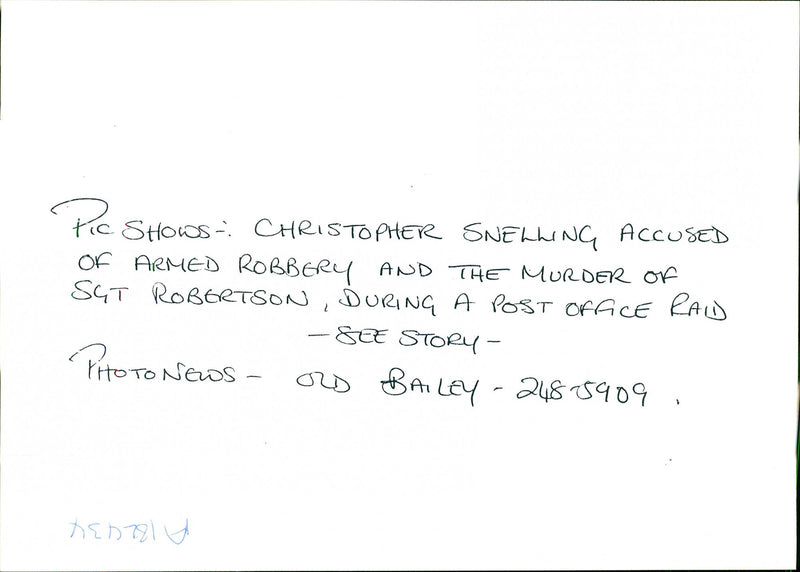 Pic SHOWS-: CHRISTOPHER SNELLING ACCUSED
OF ARMED ROBBERY AND THE MURDER OF
SGT ROBERTSON, DURING A POST OFFICE RAID
- SEE STORY -
PHOTONEWS - OLD BAILEY - 248-5909.